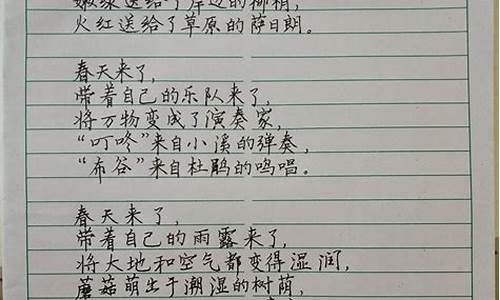 嫩绿送给了岸边的柳梢,
火红送给了草原的萨日朗。
春天来了,
带着自己的乐队来了,
将万物变成了演奏家,
“叮咚”来自小溪的弹奏,
“布谷”来自杜鹃的鸣唱。
春天来了,
带着自己的雨露来了,
将大地和空气都变得湿润,
蘑菇萌出于潮湿的树荫,